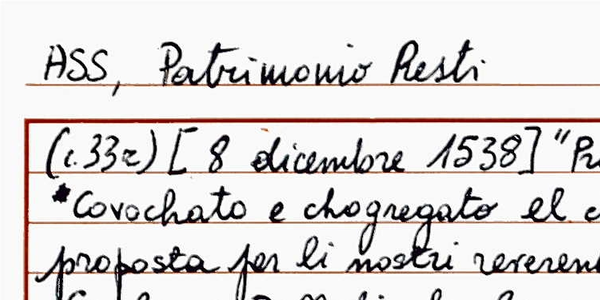 ASS, Patrimonio Resti
(c.33r) [ 8 dicembre 1538] "Pr
*Covochato e chogregato el c
proposta per li nostri reveren